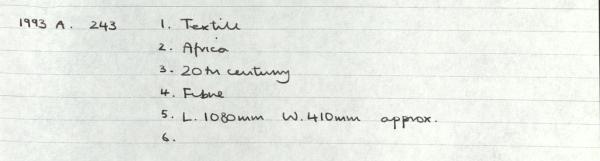 1993 A. 243 1. Textile
2. Africa
3. 20th century
4. Fibre
5. L. 1080mm W. 410mm approx.
6.